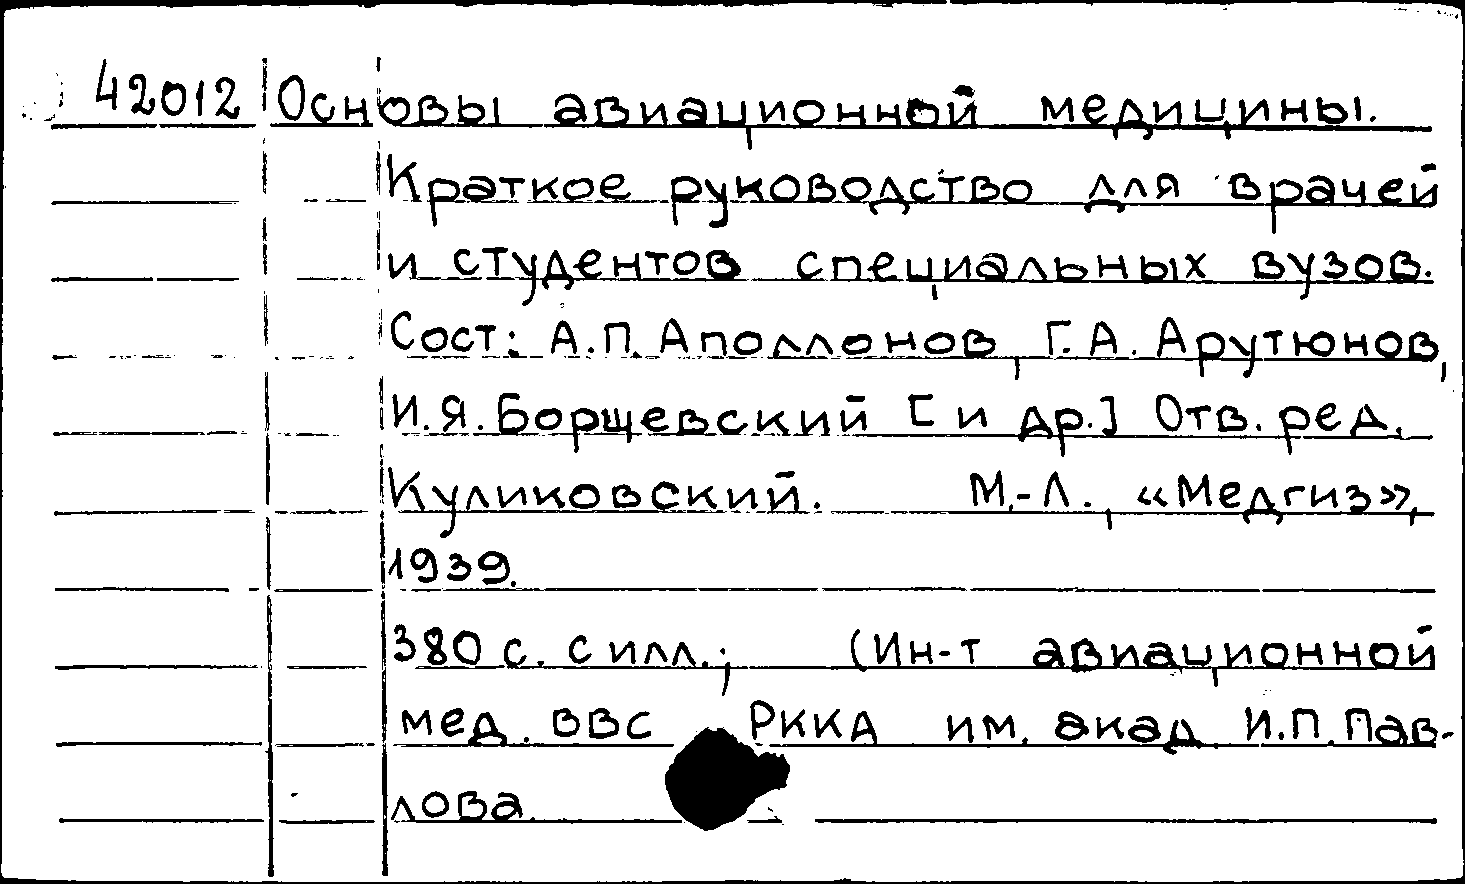 42012 Основы авиационной медицины.
Краткое руководство для врачей
и студентов специальных вузов.
Сост: А.П. Аполлонов, Г.А. Арутюнов,
И.Я. Борщевский [и др.] Отв. ред.
Куликовский. М.-Л., «Медгиз»,
1939.
380 с. с илл.; (Ин-т авиационной
мед. ВВС РККА им. акад. И.П. Пав-
лова.